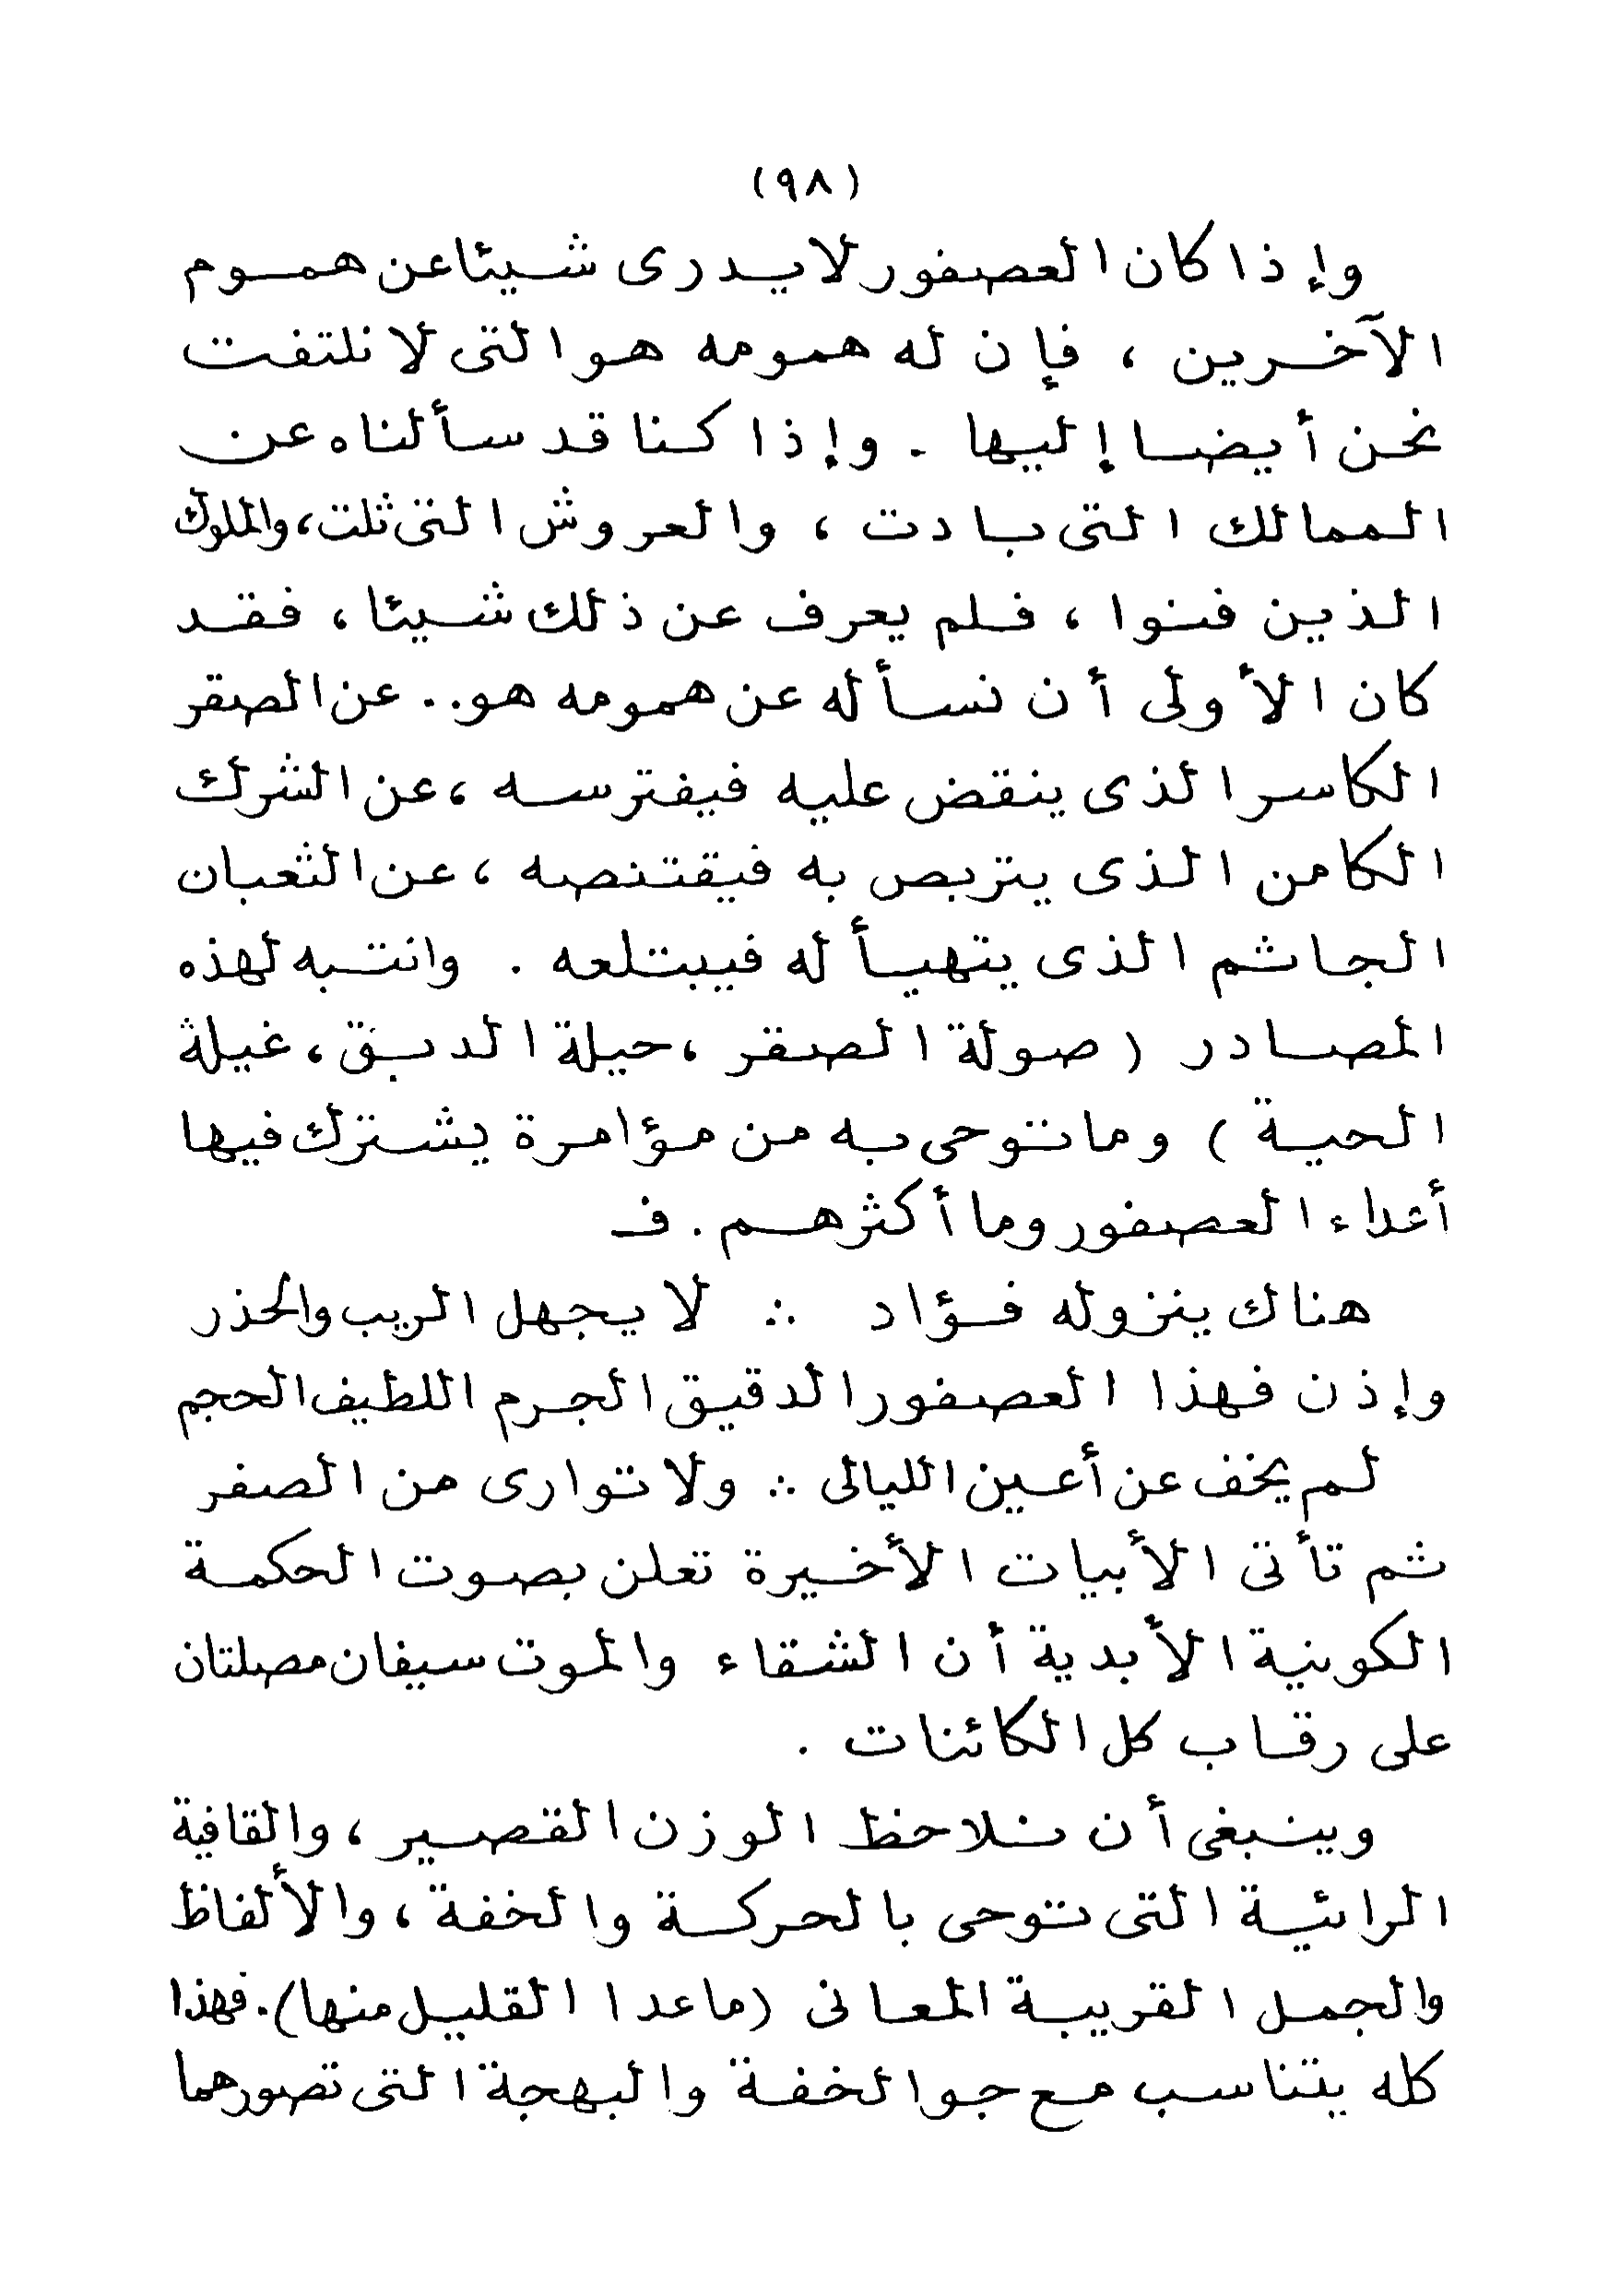 (٩٨)
وإذا كان العصفور لا يدرى شيئا عن هموم
الآخرين ، فإن له همومه هو التى لا نلتفت
نحن أيضا إليها . وإذا كنا قد سألناه عن
الممالك التى بادت ، والعروش التى ثلت ، والملوك
الذين فنوا ، فلم يعرف عن ذلك شيئا ، فقد
كان الأولى أن نسأله عن همومه هو .. عن الصقر
الكاسر الذى ينقض عليه فيفترسه ، عن الشرك
الكامن الذى يتربص به فيقتنصه ، عن الثعبان
الجاثم الذى يتهيأ له فيبتلعه . وانتبه لهذه
المصادر ( صولة الصقر ، حيلة الدبق ، غيلة
الحية ) وما توحى به من مؤامرة يشترك فيها
أعداء العصفور وما أكثرهم . فـ
هناك ينزو له فؤاد ∴ لا يجهل الريب والحذر
وإذن فهذا العصفور الدقيق الجرم اللطيف الحجم
لم يخف عن أعين الليالى ∴ ولا توارى من الصفر
ثم تأتى الأبيات الأخيرة تعلن بصوت الحكمة
الكونية الأبدية أن الشقاء والموت سيفان مصلتان
على رقاب كل الكائنات .
وينبغى أن نلاحظ الوزن القصير ، والقافية
الرائية التى توحى بالحركة والخفة ، والألفاظ
والجمل القريبة المعانى (ماعدا القليل منها). فهذا
كله يتناسب مع جو الخفة والبهجة التى تصورهما